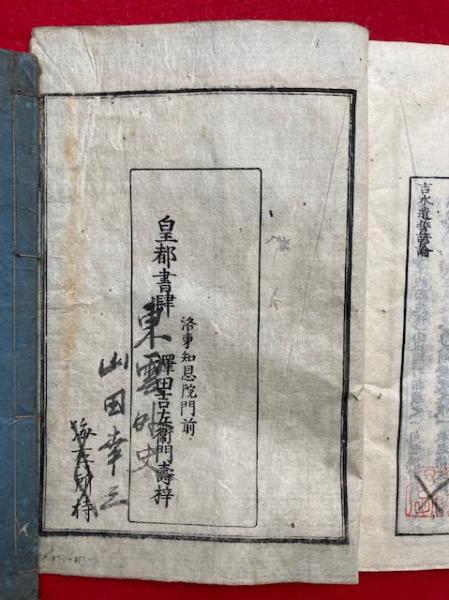 吉水遺誓諺論
洛東知恩院門前
皇都書肆 澤田吉左衞門壽梓
東雲
山田幸三